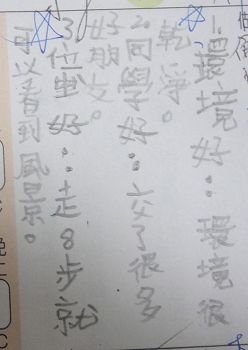 1.環境好：環境很
乾淨。
2.同學好：交了很多
好朋友。
3.位置好：走8步就
可以看到風景。